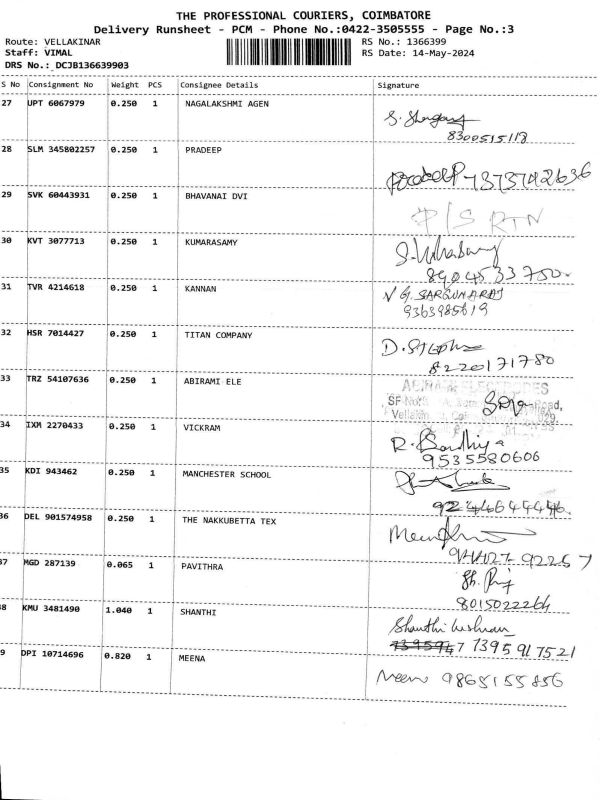 THE PROFESSIONAL COURIERS, COIMBATORE
Delivery Runsheet - PCM - Phone No.:0422-3505555 - Page No.:3
Route: VELLAKINAR RS No.: 1366399
Staff: VIMAL RS Date: 14-May-2024
DRS No.: DCJB136639903
S No Consignment No Weight PCS Consignee Details Signature
27 UPT 6067979 0.250 1 NAGALAKSHMI AGEN
8300515118
28 SLM 345802257 0.250 1 PRADEEP
Pradeep 7373742636
29 SVK 60443931 0.250 1 BHAVANAI DVI
P/S RTN
30 KVT 3077713 0.250 1 KUMARASAMY
8904533750
31 TVR 4214618 0.250 1 KANNAN
N G. SARGUNARAJ
9363985619
32 HSR 7014427 0.250 1 TITAN COMPANY
8220171780
33 TRZ 54107636 0.250 1 ABIRAMI ELE
34 IXM 2270433 0.250 1 VICKRAM
9535580606
35 KDI 943462 0.250 1 MANCHESTER SCHOOL
36 DEL 901574958 0.250 1 THE NAKKUBETTA TEX
37 MGD 287139 0.065 1 PAVITHRA
8015022264
38 KMU 3481490 1.040 1 SHANTHI
Shanthi
7395917521
39 DPI 10714696 0.820 1 MEENA
Meena 9865155856